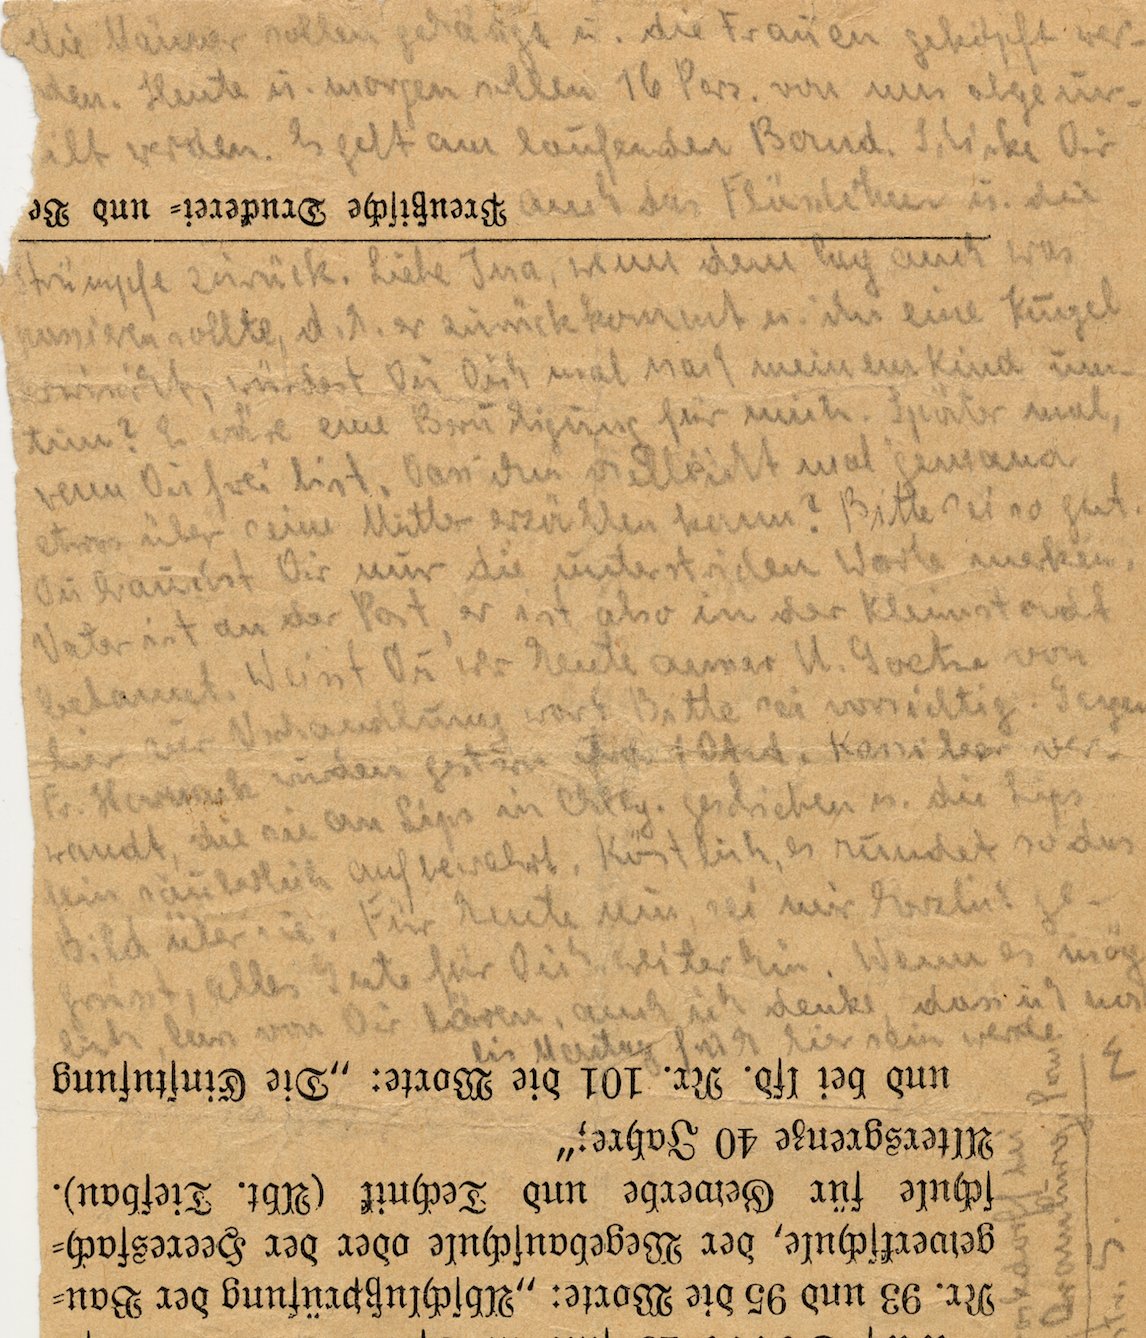 die Männer sollen gehängt u. die Frauen geköpft wer-
den. Heute u. morgen sollen 16 Pers. von uns abgeur-
eilt werden. Es geht am laufenden Band. Schicke Dir
auch das Fläschchen u. die
Preußische Druckerei- und Ve
Strümpfe zurück. Liebe Ina, wenn dem auch was
passieren sollte, d.h. er zurückkommt u. ihn eine Kugel
erwischt, würdest Du Dich mal nach meinem Kind um-
tun? Es wäre eine Beruhigung für mich. Später mal,
wenn Du frei bist. Dass ihm vielleicht mal jemand
etwas über seine Mutter erzählen kann? Bitte sei so gut.
Du brauchst Dir nur die unterstrichen Worte merken.
Vater ist an der Post, er ist also in der Kleinstadt
bekannt. Weisst Du wer heute ausser U. Goetze von
hier zur Verhandlung war? Bitte sei vorsichtig. Gegen
Fr. wurden gestern Kassiber ver-
wandt, die sie an Lips in geschrieben u. die Lips
fein säuberlich aufbewahrt. Köstlich, es rundet so das
Bild über sie. Für heute nun, sei mir herzlich ge-
grüsst, alles Gute für Dich weiterhin. Wenn es mög
lich, lass von Dir hören, auch ich denke, dass ich noch
bis Montag früh hier sein werde
und bei lfd. Nr. 101 die Worte: „Die Einstufung
Altersgrenze 40 Jahre;“
schule für Gewerbe und Technik (Abt. Tiefbau).
gewerkschule, der Wegebauschule oder der Heeresfach-
Nr. 93 und 95 die Worte: „Abschlußprüfung der Bau-